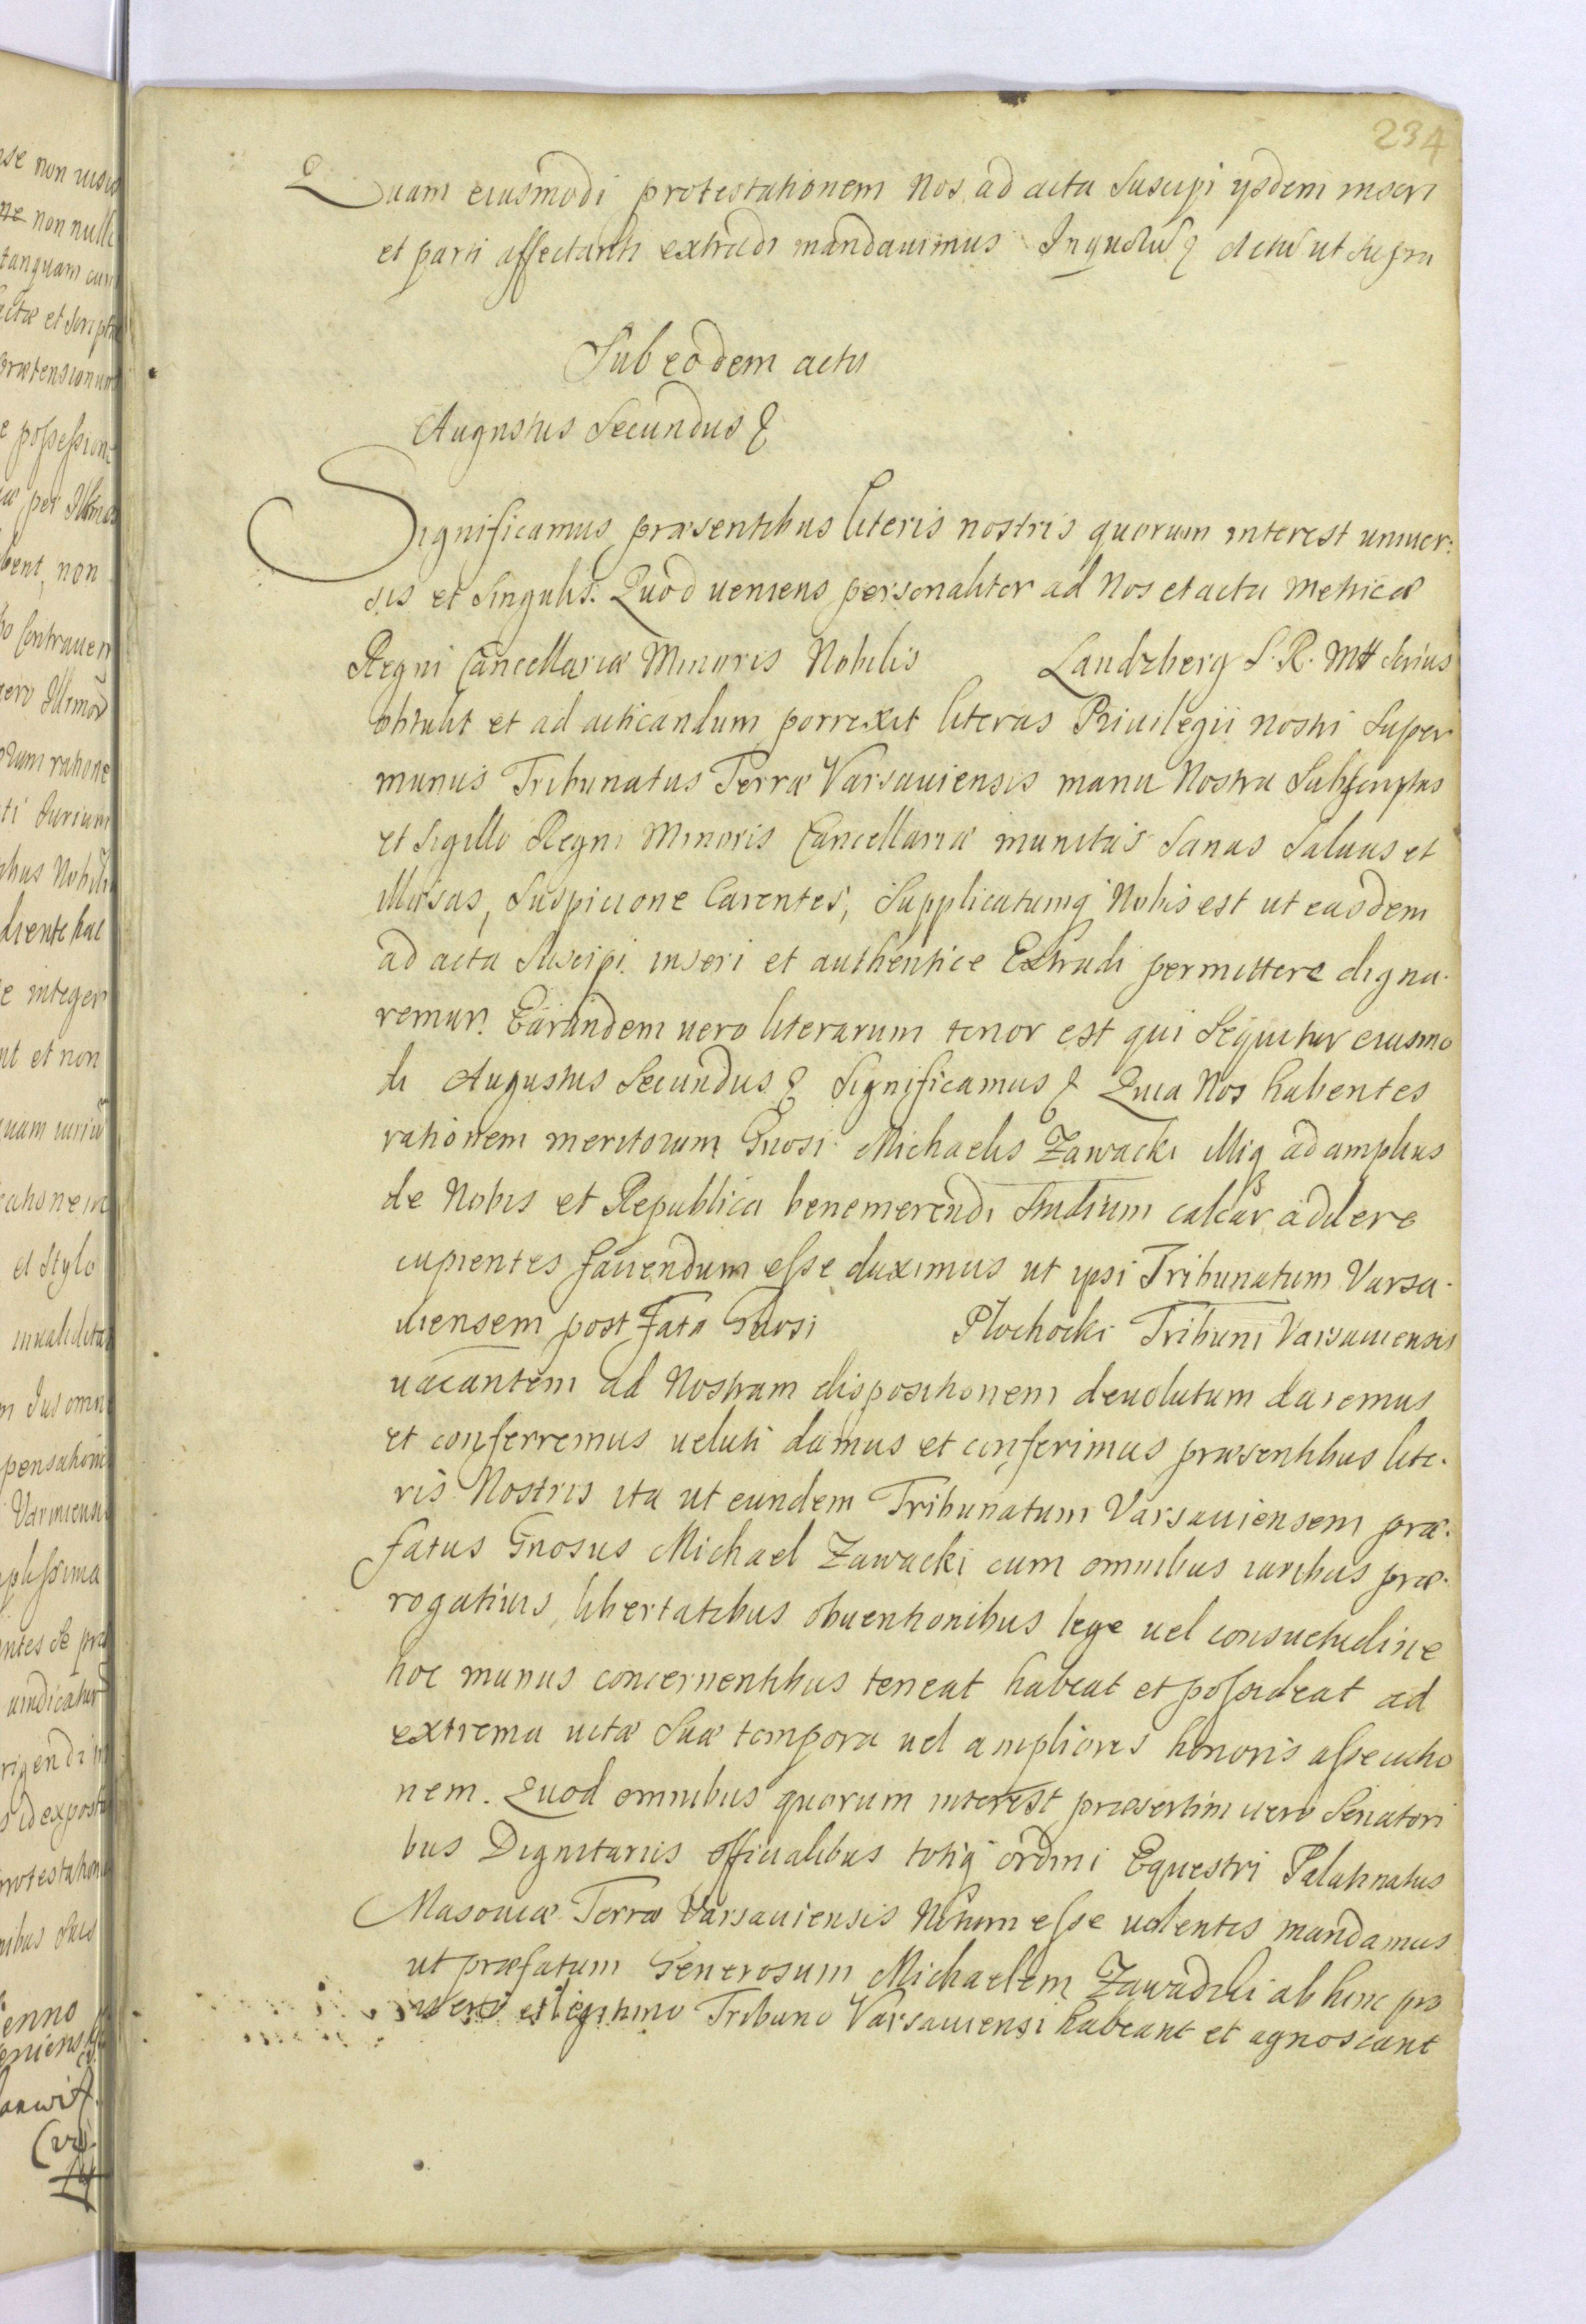 234
Quam eiusmodi protestationem Nos ad acta suscipi ysdem inseri
et parti affectanti extradi mandauimus actu ut supra
Sub eodem actu
Augustus Secundus &
Significamus præsentibus literis nostris quorum interest uniuer:
sis et singulis. Quod ueniens personaliter ad Nos et acta Metricæ
Regni Cancellariæ Minoris Nobilis Landzberg S. R. Mtt
obtulit et ad acticandum porrexit literas Priuilegii nostri super
munus Tribunatus Terræ Varsauiensis manu Nostra Subscriptas
et Sigillo Regni Minoris Cancellariæ munitas Sanas Saluas et
illæsas, Suspicione Carentes, Supplicatumq Nobis est ut easdem
ad acta Suscipi inseri et authentice Extradi permittere digna.
remur. Earundem uero literarum tenor est qui Sequitur eiusmo
di Augustus Secundus & Significamus & Quia Nos habentes
rationem meritorum Gnosi Michaelis Zawacki illiq ad amplius
de Nobis et Republica benemerendi Studium calcar addere
cupientes fauendum esse duximus ut ipsi Tribunatum Varsa.
uiensem post Fata Gnosi Plochocki Tribuni Varsauiensis
uacantem ad Nostram dispositionem deuolutum daremus
et conferremus ueluti damus et conferimus præsentibus lite.
ris Nostris ita ut eundem Tribunatum Varsauiensem præ.
fatus Gnosus Michael Zawacki cum omnibus iuribus præ.
rogatiuis, libertatibus obuentionibus lege uel consuetudine
hoc munus concernentibus teneat habeat et possideat ad
extrema uitæ Suæ tempora uel amplioris honoris assecutio
nem. Quod omnibus quorum interest præsertim uero Senatori
bus Dignitariis officialibus totiq ordini Equestri Palatinatus
Masouiæ Terræ Varsauiensis Notum esse uolentes mandamus
ut præfatum Generosum Michaelem Zawadzki ab hinc pro
uero et legitimo Tribuno Varsauiensi habeant et agnoscant